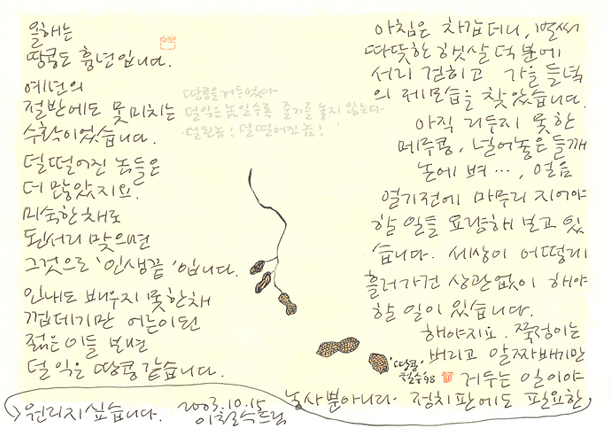 올해는
땅콩도 흉년입니다.
예년의
절반에도 못미치는
수확이었습니다.
덜떨어진 놈들은
더 많았지요.
미숙한채로
된서리 맞으면
그것으로 '인생끝'입니다.
인내도 배우지 못한채
껍데기만 어른이된
젊은이들 보면
덜익은 땅콩같습니다.
땅콩을거두었다
덜익은놈일수록 줄기를 놓지 않는다
덜된놈! 덜떨어진놈!
아침은 차갑더니, 벌써
따뜻한 햇살 덕분에
서리 걷히고 가을 들녘
의 제모습을 찾았습니다.
아직 거두지 못한
메주콩, 널어놓은들깨
논에 벼..., 얼음
얼기전에 마무리 지어야
할 일들 요량해 보고 있
습니다. 세상이 어떻게
흘러가건 상관없이 해야
할 일이 있습니다.
해야지요. 쭉정이는
버리고 알짜배기만
거두는 일이야
'땅콩'
철수93
농사뿐아니라 정치판에도 필요한
원리지 싶습니다. 2003.10.15
이철수드림